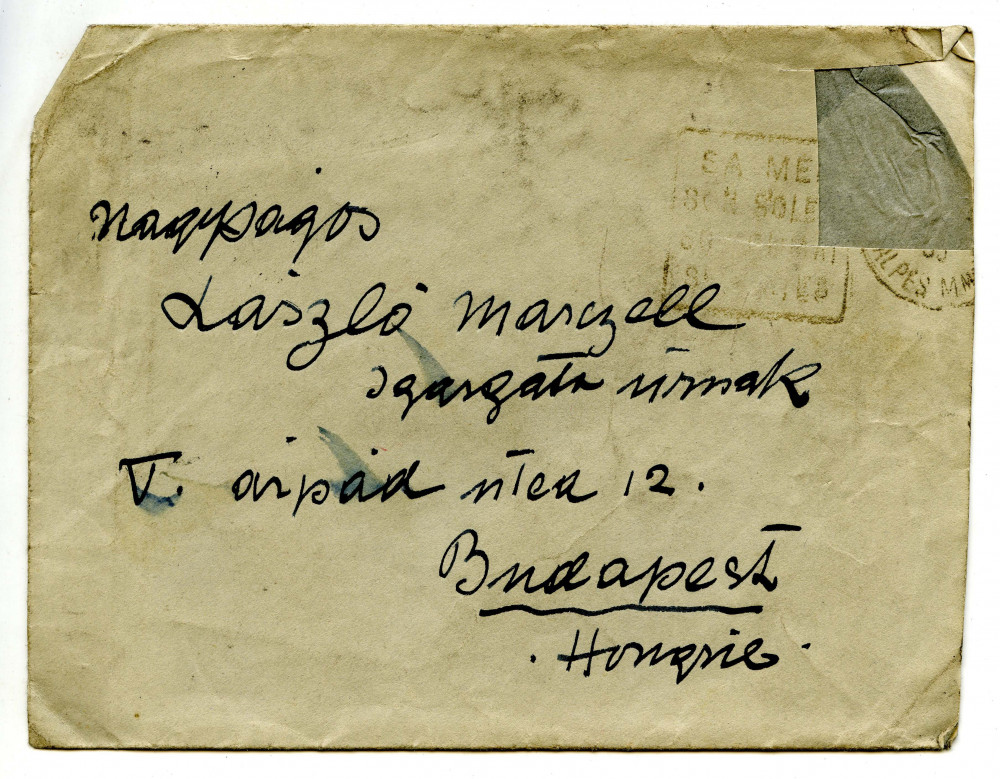 SA ME
SON SOLE
ALPES MME
Nagyságos
László Marczell
igazgató úrnak
V. Árpád utca 12.
Budapest
Hongrie.